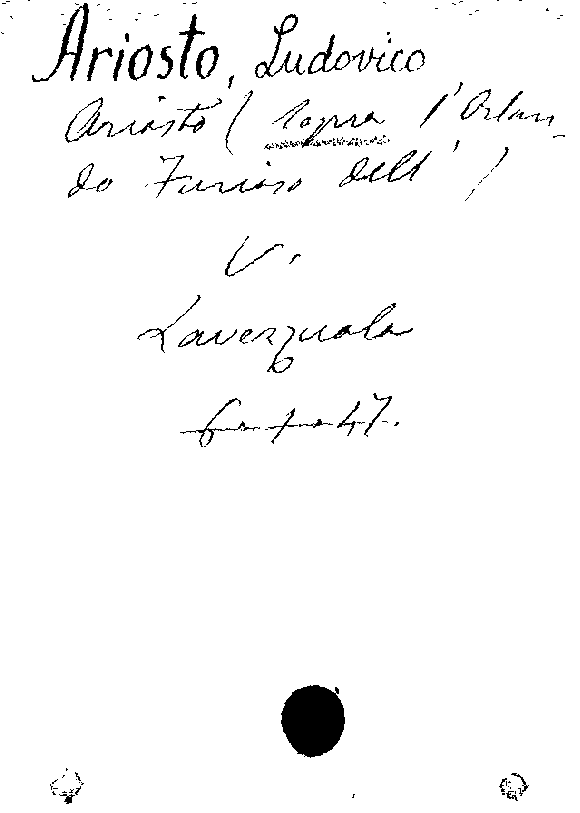 Ariosto, Ludovico
Ariosto (sopra l'Orlan-
do Furioso dell')
V.
Lavezzuola
6.1.47.